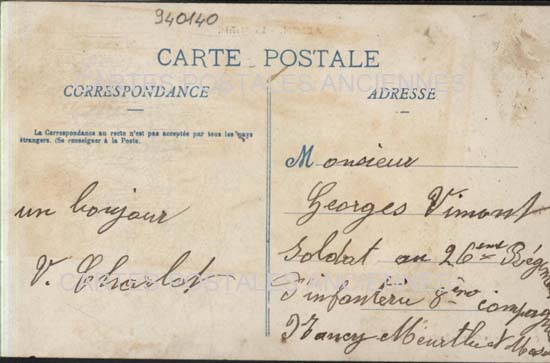 940140
CARTE POSTALE
CARTES POSTALES ANCIENNES
CORRESPONDANCE
ADRESSE
La Correspondance au recto n'est pas acceptée par tous les pays
étrangers. (Se renseigner à la Poste.
un bonjour
V. Charlot
Monsieur
Georges Vimont
Soldat au 26eme Régim
d'infanterie 8ème compagn
Nancy Meurthe et Mos
CARTES POSTALES ANCIENNES